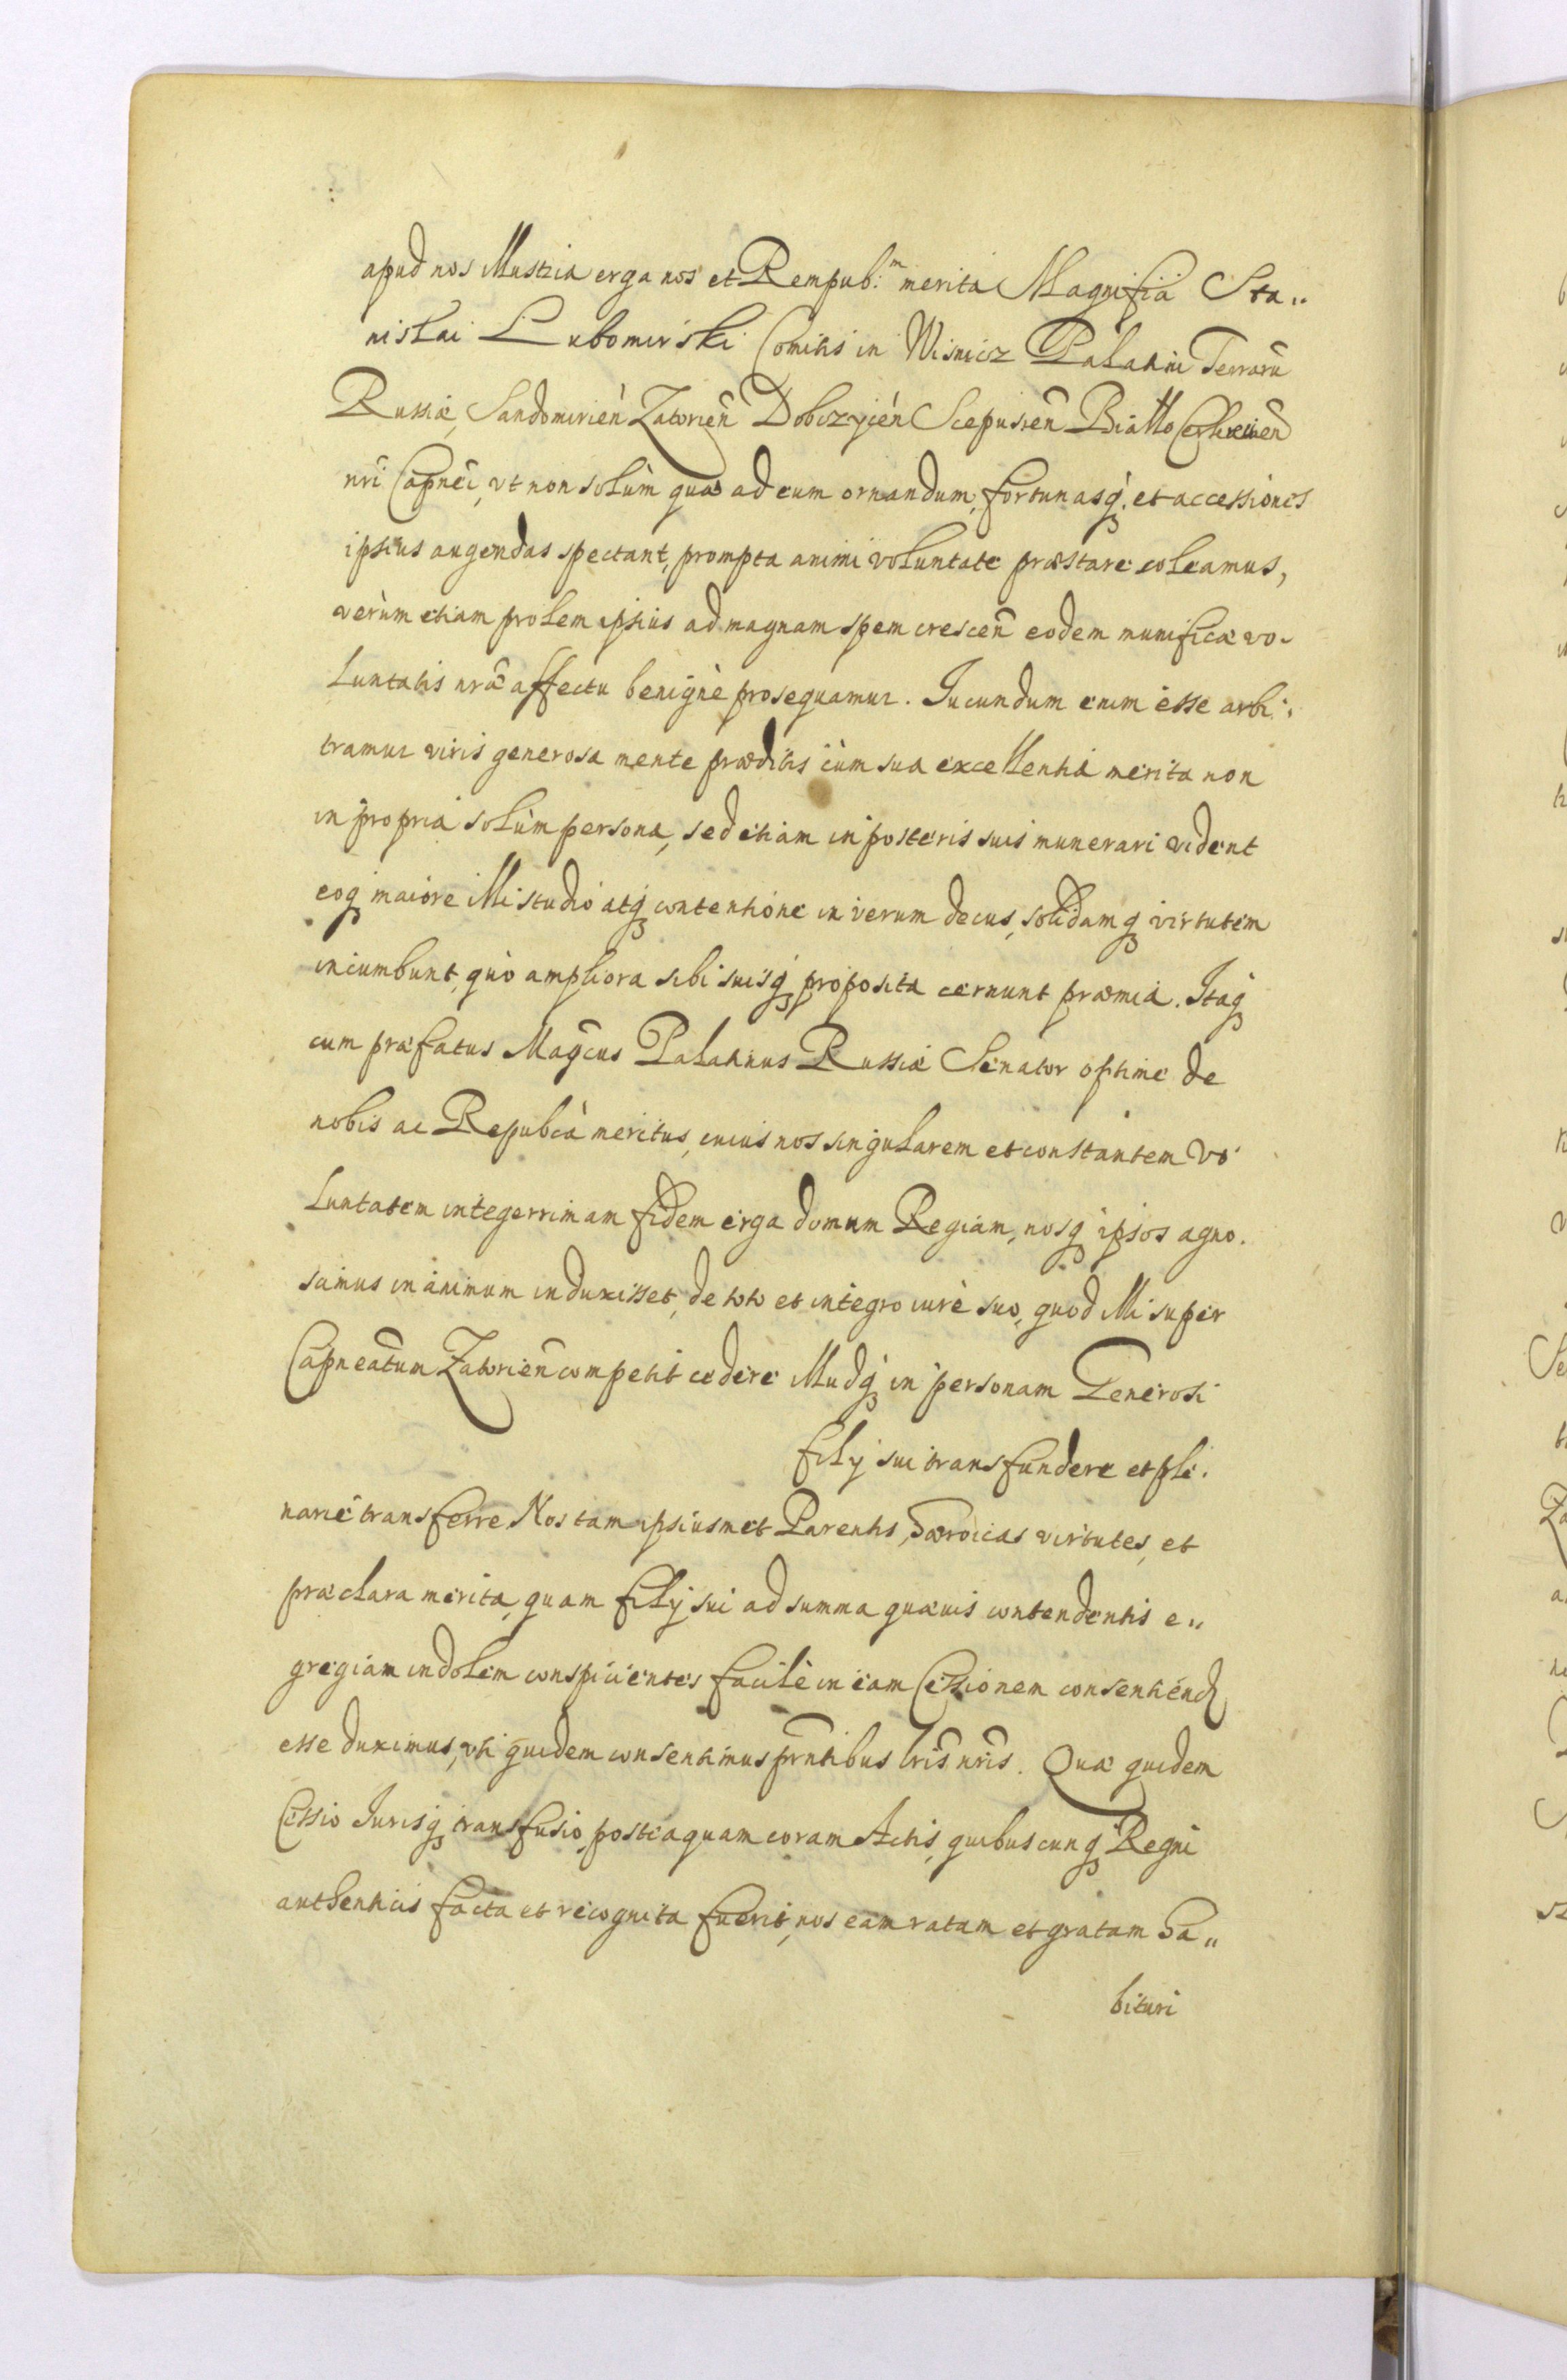 apud nos Illustria erga nos et Rempub:m merita Magnifici Sta„
nislai Lubomirski Comitis in Wisnicz Palatini Terrarũ
Russiæ, Sandomirieñ Zatorieñ Dobczycieñ Scepusieñ Biallo Cerkwieñ
nr̃i Capnei, vt non solùm quæ ad eum ornandum, fortunasq; et accessiones
ipsius augendas spectant, prompta animi voluntate præstare soleamus,
verùm etiam prolem ipsius ad magnam spem cresceñ eodem munificæ vo-
luntatis nr̃æ affectu benignè prosequamur. Jucundum enim esse arbi-
tramur viris generosa mente præditis cùm sua excellentiâ merita non
in propria solùm persona, sed etiam in posteris suis munerari vident
eoq; maiore illi studio atq; contentione in verum decus, solidamq; virtutem
incumbunt, quò ampliora sibi suisq; proposita cernunt præmia. Itaq;
cum præfatus Magcus Palatinus Russiæ Senator optime de
nobis ac Republcà meritus, cuius nos singularem et constantem vo-
luntatem integerrimam fidem erga domum Regiam, nosq; ipsos agno-
scimus in animum induxisset, de toto et integro iure suo, quod illi super
Capneatum Zatorieñ competit cedere illudq; in personam Generosi
filij sui transfundere et ple-
narie transferre Nos tam ipsiusmet Parentis, hæroicas virtutes, et
præclara merita, quam filij sui ad summa quævis contendentis e„
gregiam indolem conspicientes facile in eam Cessionem consentiend
esse duximus, vti quidem consentimus prñtibus lr̃is nr̃is. Quæ quidem
Cessio Jurisq; transfusio, posteaquam coram Actis, quibuscunq; Regni
authenticis facta et recognita fuerit, nos eam ratam et gratam ha„
bituri